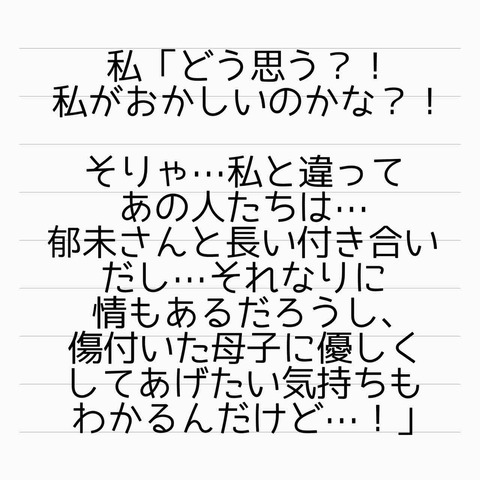 私「どう思う？！
私がおかしいのかな？！
そりゃ…私と違って
あの人たちは…
郁未さんと長い付き合い
だし…それなりに
情もあるだろうし、
傷付いた母子に優しく
してあげたい気持ちも
わかるんだけど…！」